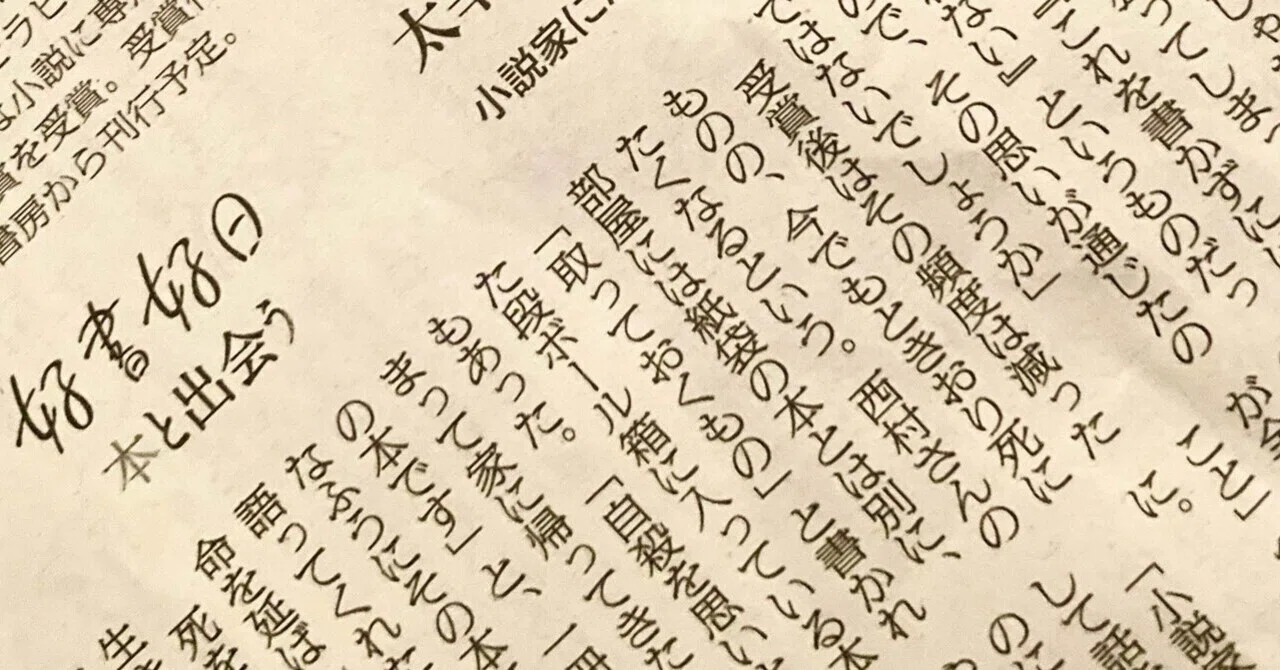 ってしま
『これを書かずに
ない』というものだっ
ので、その思いが通じたの
ではないでしょうか」
受賞後はその頻度は減った
ものの、今でもときおり死に
たくなるという。西村さんの
部屋には紙袋の本とは別に、
「取っておくもの」と書かれ
た段ボール箱に入っている本
もあった。「自殺を思い
まって家に帰ってきた
の本です」と、一冊
なふうにその本
語ってくれた
命を延ば
死を
生
が今
こと」
に。
「小説家
して話
の
太
小説家に
ラピ
小説に専
賞を受賞。受賞作
書房から刊行予定。
好書好日
本と出会う